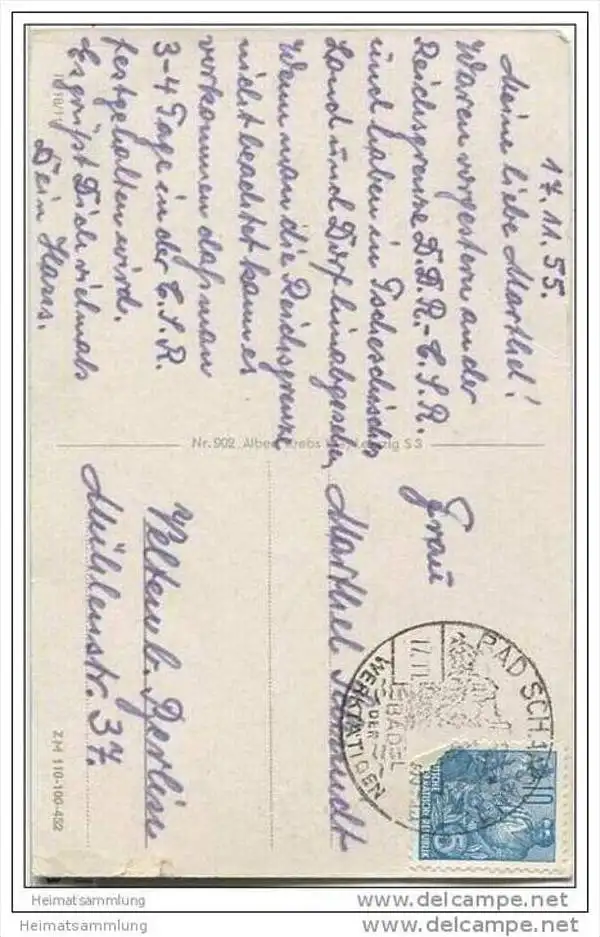 17.11.55.
Meine liebe Marthel!
Waren vorgestern an der
Reichsgrenze D.D.R.-C.S.R.
und haben in Tschechisches
Land und Dorf hinabgesehen
Wenn man die Reichsgrenze
nicht beachtet kann es
vorkommen daß man
3-4 Tage in der C.S.R.
festgehalten wird.
Es grüßt Dich vielmals
Dein Hans.
Nr. 902 Albert Krebs Leipzig S 3
Frau
Marthel
Velten b. Berlin
Mühlenstr. 37.
ZM 110-100-452
BAD SCHANDAU
17.11.
BAD DER
WERKTÄTIGEN
5
Heimatsammlung
www.delcampe.net
Heimatsammlung
www.delcampe.net